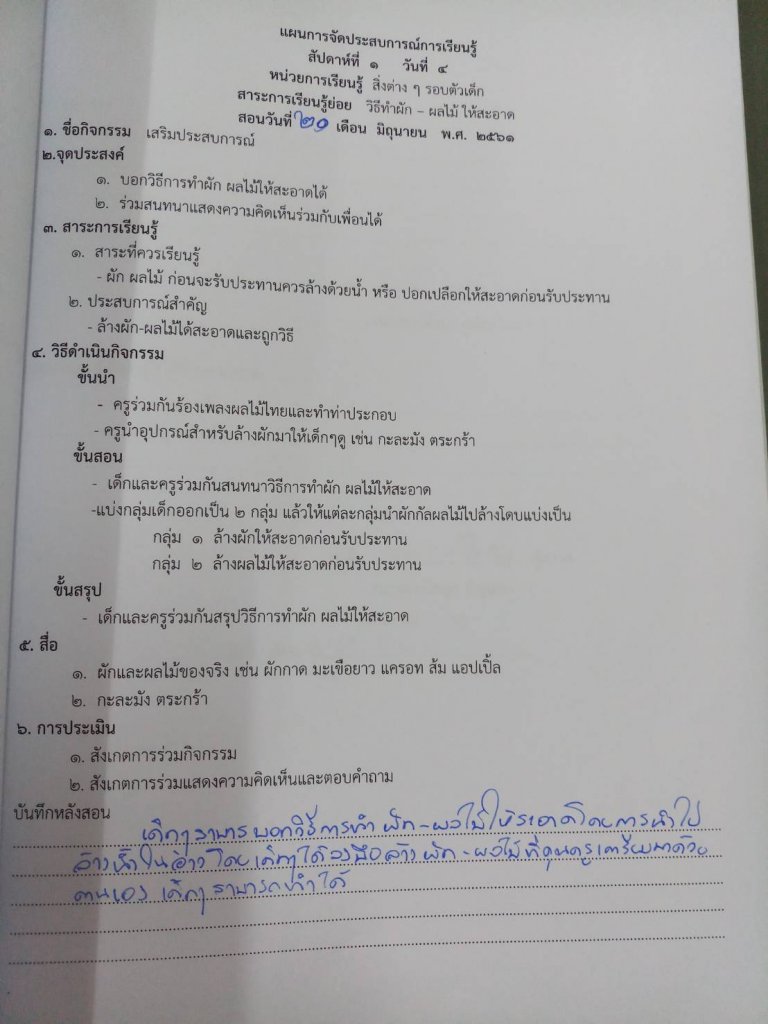 แผนการจัดประสบการณ์การเรียนรู้
สัปดาห์ที่ ๑ วันที่ ๔
หน่วยการเรียนรู้ สิ่งต่าง ๆ รอบตัวเด็ก
สาระการเรียนรู้ย่อย วิธีทำผัก – ผลไม้ ให้สะอาด
สอนวันที่ ๒๐ เดือน มิถุนายน พ.ศ. ๒๕๖๑
๑. ชื่อกิจกรรม เสริมประสบการณ์
๒.จุดประสงค์
๑. บอกวิธีการทำผัก ผลไม้ให้สะอาดได้
๒. ร่วมสนทนาแสดงความคิดเห็นร่วมกับเพื่อนได้
๓. สาระการเรียนรู้
๑. สาระที่ควรเรียนรู้
- ผัก ผลไม้ ก่อนจะรับประทานควรล้างด้วยน้ำ หรือ ปอกเปลือกให้สะอาดก่อนรับประทาน
๒. ประสบการณ์สำคัญ
- ล้างผัก-ผลไม้ได้สะอาดและถูกวิธี
๔. วิธีดำเนินกิจกรรม
ขั้นนำ
- ครูร่วมกันร้องเพลงผลไม้ไทยและทำท่าประกอบ
- ครูนำอุปกรณ์สำหรับล้างผักมาให้เด็กๆดู เช่น กะละมัง ตระกร้า
ขั้นสอน
- เด็กและครูร่วมกันสนทนาวิธีการทำผัก ผลไม้ให้สะอาด
-แบ่งกลุ่มเด็กออกเป็น ๒ กลุ่ม แล้วให้แต่ละกลุ่มนำผักกัลผลไม้ไปล้างโดบแบ่งเป็น
กลุ่ม ๑ ล้างผักให้สะอาดก่อนรับประทาน
กลุ่ม ๒ ล้างผลไม้ให้สะอาดก่อนรับประทาน
ขั้นสรุป
- เด็กและครูร่วมกันสรุปวิธีการทำผัก ผลไม้ให้สะอาด
๕. สื่อ
๑. ผักและผลไม้ของจริง เช่น ผักกาด มะเขือยาว แครอท ส้ม แอปเปิ้ล
๒. กะละมัง ตระกร้า
๖. การประเมิน
๑. สังเกตการร่วมกิจกรรม
๒. สังเกตการร่วมแสดงความคิดเห็นและตอบคำถาม
บันทึกหลังสอน
เด็กๆสามารบอกวิธีการทำ ผัก-ผลไม้ให้สะอาดโดยการนำไป
ล้างน้ำในอ่าง โดย เด็กๆได้ลงมือล้าง ผัก-ผลไม้ที่คุณครูเตรียมมาด้วย
ตนเอง เด็กๆ สามารถทำได้